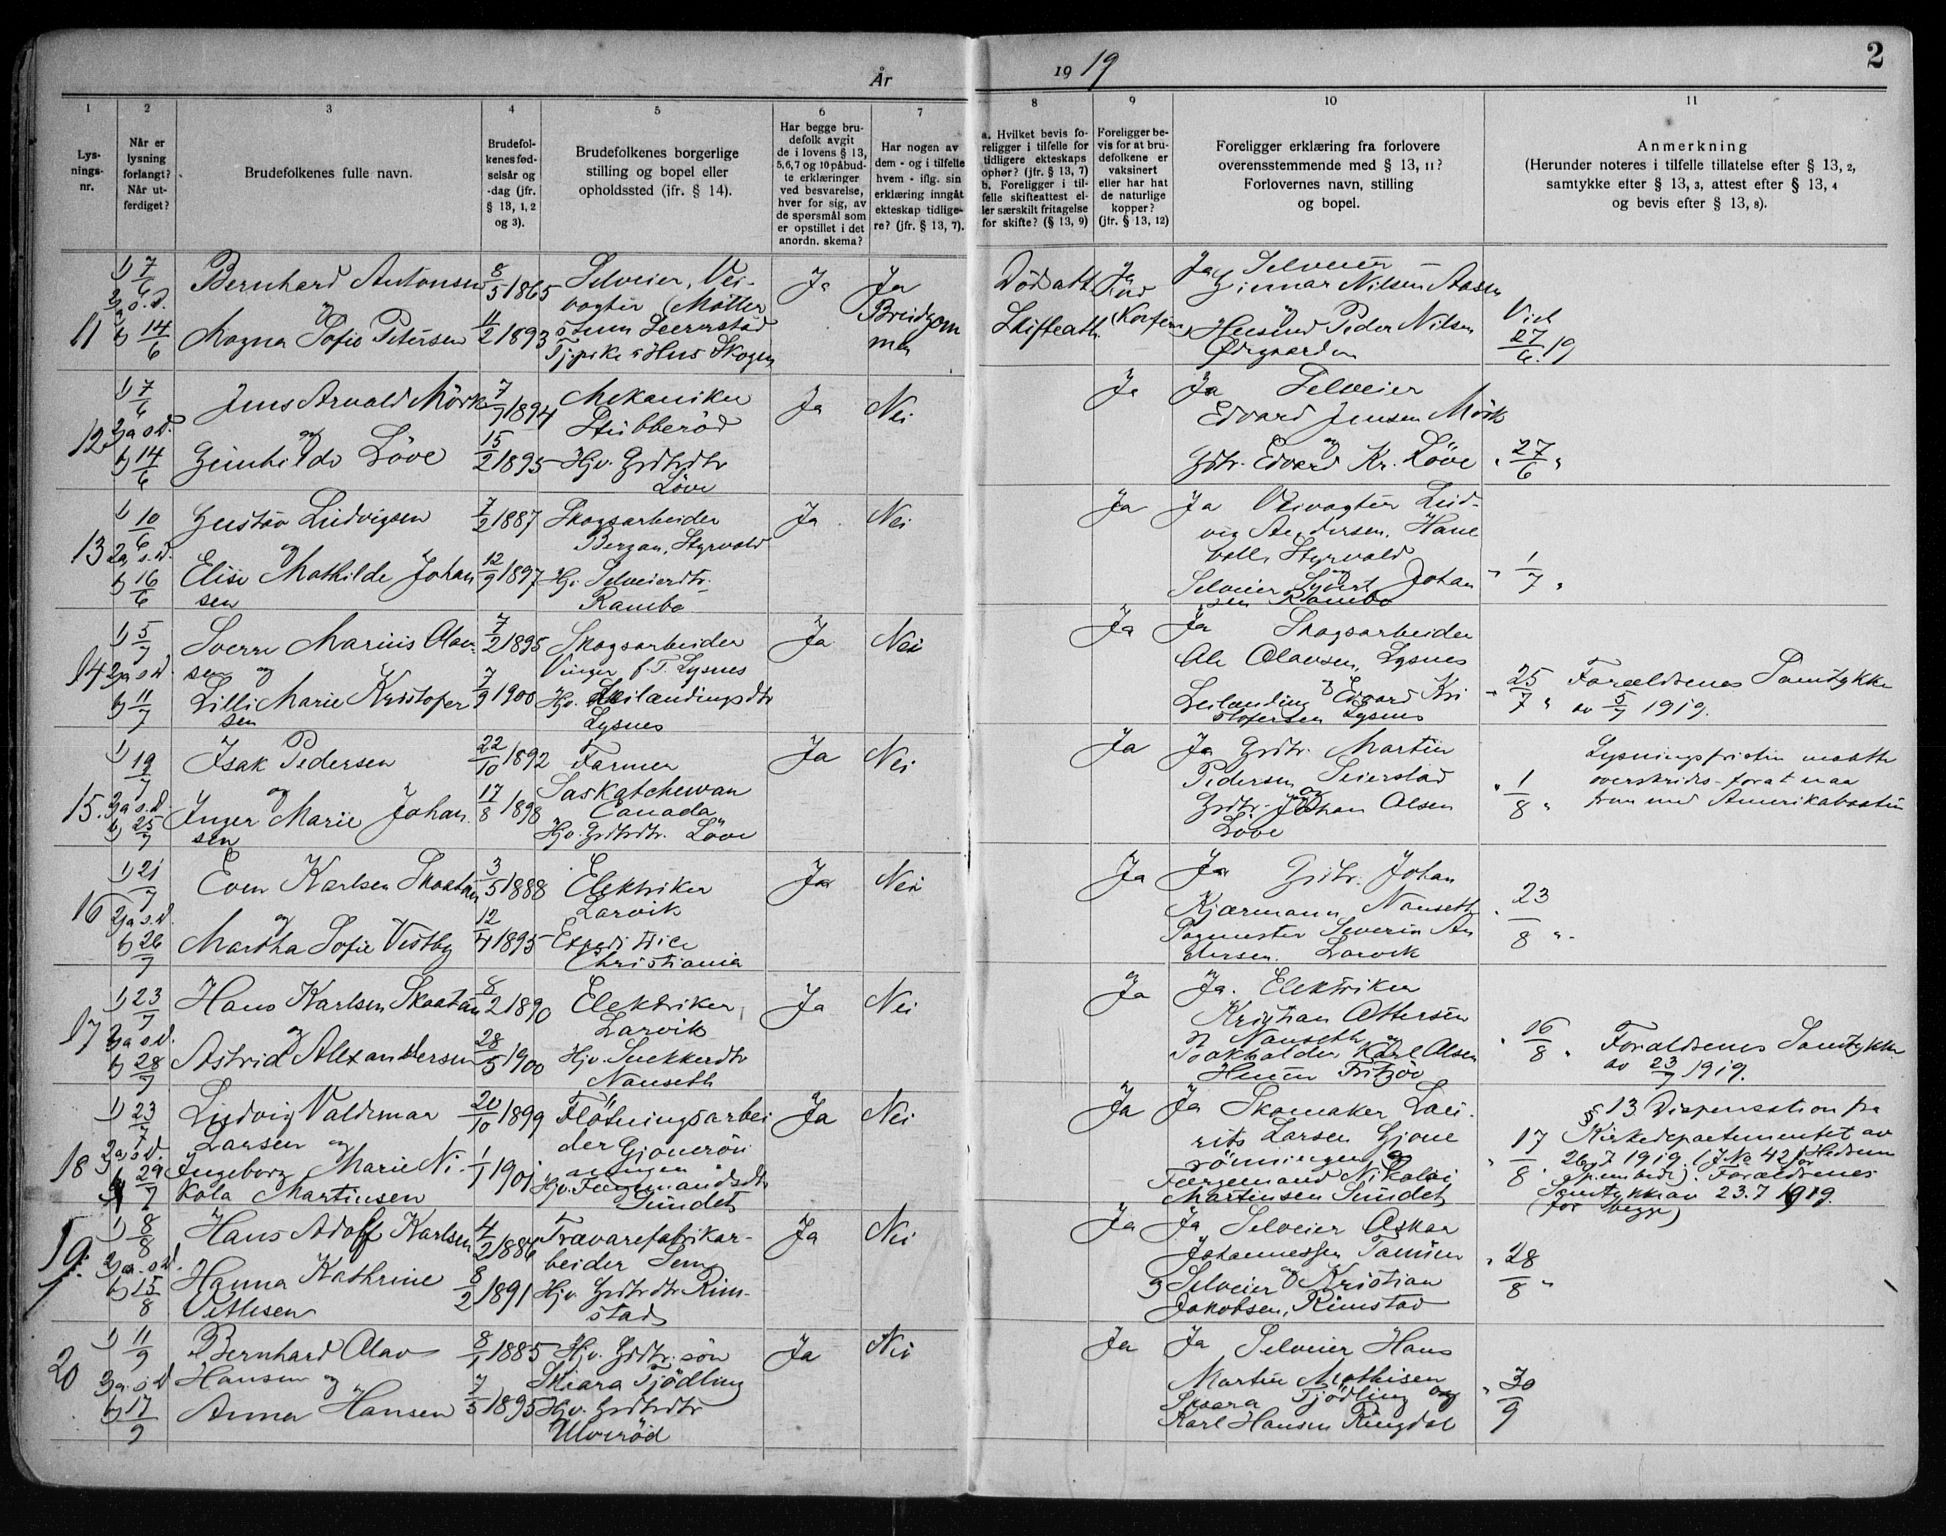 År
19 19
2
1
2
3
4
5
6
7
8
9
10
11
Lys-
nings-
nr.
Når er
lysning
forlangt?
Når ut-
ferdiget?
Brudefolkenes fulle navn.
Brudefol-
kenes fød-
selsår og
-dag (jfr.
§ 13, 1, 2
og 3).
Brudefolkenes borgerlige
stilling og bopel eller
opholdssted (jfr. § 14).
Har begge bru-
defolk avgit
de i lovens § 13,
5,6,7 og 10 påbud-
te erklæringer
ved besvarelse,
hver for sig, av
de spørsmål som
er opstillet i det
anordn. skema?
Har nogen av
dem - og i tilfelle
hvem - iflg. sin
erklæring inngåt
ekteskap tidlige-
re? (jfr. § 13, 7).
a. Hvilket bevis fo-
religger i tilfelle for
tidligere ekteskaps
ophør? (jfr. § 13, 7)
b. Foreligger i til-
felle skifteattest el-
ler særskilt fritagelse
for skifte? (§ 13, 9)
Foreligger be-
vis for at bru-
defolkene er
vaksinert
eller har hat
de naturlige
kopper?
(jfr. § 13, 12)
Foreligger erklæring fra forlovere
overensstemmende med § 13, 11?
Forlovernes navn, stilling
og bopel.
Anmerkning
(Herunder noteres i tilfelle tillatelse efter § 13, 2,
samtykke efter § 13, 3, attest efter § 13, 4
og bevis efter § 13, 8).
11
1) 7/6
2) a s.d.
b) 14/6
Bernhard Antonsen
og
Magna Sofie Petersen
8/5 1865
11/2 1893
Selveier, Vei-
vogter
Tjpike i Hus Skogen
Ja
Ja
Breidgom
men
Dødsatt
Skifteatt.
Ja
Ja Selveier
Gunnar Nilsen Aasen
Peder Nilsen
Ødegaarden
Viet
27/6 19
12
1) 7/6
2) a s.d.
b) 14/6
Jens Arvald Mörk
og
Gunhilda Löve
7/7 1894
15/2 1895
Mekaniker
Stubberöd
Hjv. Grdbrdtr
Löve
Ja
Nei
Ja
Ja Selveier
Edvard Jensen Mörk
og
Gdbr. Edvard Kr. Löve
" 27/6 "
13
1) 10/6
2) a s.d.
b) 16/6
Gustav Ludvigsen
og
Elise Mathilde Johan
sen
7/2 1887
12/9 1897
Skogsarbeider
Bergan, Styrvold
Hjv. Selveierdtr.
Rambo
Ja
Nei
Ja
Ja Veivogter Lud-
vig Andersen, Hane
voll, Styrvold
og
Selveier Sivert Johan
sen Rambo
" 1/7 "
14
1) 5/7
2) a s.d.
b) 11/7
Sverre Marius Olav-
sen og
Lilli Marie Kristofer
sen
7/2 1895
7/9 1900
Skogsarbeider
Vinger f. T. Lysnes
Hjv. Leilandingsdtr
Lysnes
Ja
Nei
Ja
Ja Skogsarbeider
Ole Olavsen, Lysnes
Leilanding Edvard Kri
stofersen Lysnes
" 25/7 "
Forældrenes Samtykke
av 5/7 1919.
15.
1) 19/7
2) a s.d.
b) 25/7
Isak Pedersen
og
Inger Marie Johan
sen
22/10 1892
17/8 1898
Farmer
Saskatchewan
Canada
Hjv. Grdbrdtr. Löve
Ja
Nei
Ja
Ja Grdbr. Martin
Pedersen Seierstad
og
Grdbr. Johan Olsen
Löve
" 1/8 "
Lysningsfristen maatte
overskrides forat naa
frem med Amerikabaaten
16
1) 21/7
2) a s.d.
b) 26/7
Even Karlsen Skaatan
og
Martha Sofie Vestby
3/5 1888
12/4 1895
Elektriker
Larvik
Expeditrice
Christiania
Ja
Nei
Ja
Ja Grdbr. Johan
Kjærmann, Nanseth
Sagmester Severin An
dersen. Larvik
" 23/8 "
17
1) 23/7
2) a s.d.
b) 28/7
Hans Karlsen Skaatan
og
Astrid Alexandersen
8/2 1890
28/5 1900
Elektriker,
Larvik
Hjv. Snekkerdtr
Nanseth
Ja
Nei
Ja
Ja. Elektriker
Kristian Ottersen
Nanseth og
Karl Olsen
Fritzöe
" 16/8 "
Forældrenes Samtykke
av 23/7 1919.
18
1) 23/7
2) a s.d.
b) 29/7
Ludvig Valdemar
Larsen og
Ingeborg Marie Ni-
kola Martinsen
20/10 1899
1/1 1901
Flötningsarbei
der Gjonerön
ningen
Hjv. Færgemandsdtr
Sundet
Ja
Nei
Ja
Ja Skomaker Lau-
rits Larsen Gjone
rönningen og
Færgemand Nikolai
Martinsen Sundet
" 17/8 "
§ 13 Dispensation fra
Kirkedepartementet av
26.7 1919 (J No 42 for Hedrum
p.embede). Forældrenes
Samtykke av 23.7 1919.
(for begge)
19.
1) 8/8
2) a s.d.
b) 15/8
Hans Adolf Karlsen
Hanna Kathrine
Vetlesen
4/2 1886
8/2 1891
Trævarefabrikar-
beider Sem
Hjv. Grdbrdtr Rim-
stad
Ja
Nei
Ja
Ja Selveier Oskar
Johannessen
og Selveier Kristian
Jakobsen, Rimstad
" 28/8 "
20
1) 11/9
2) a s.d.
b) 17/9
Bernhard Olav
Hansen og
Anna Hansen
8/1 1885
7/5 1895
Hjv. Grdbr. sön
Skara Tjödling
Hjv. Grdbrdtr
Ulveröd
Ja
Nei
Ja
Ja Selveier Hans
Martin Mathisen
Skara Tjödling og
Karl Hansen Ringdal
" 30/9